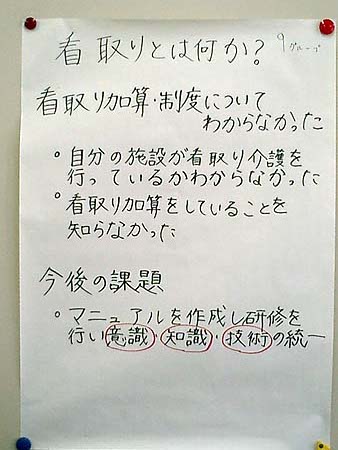 看取りとは何か? 9グループ
看取り加算・制度について
わからなかった
。自分の施設が看取り介護を
行っているかわからなかった
。看取り加算をしていることを
知らなかった
今後の課題
。マニュアルを作成し研修を
行い意識・知識・技術の統一